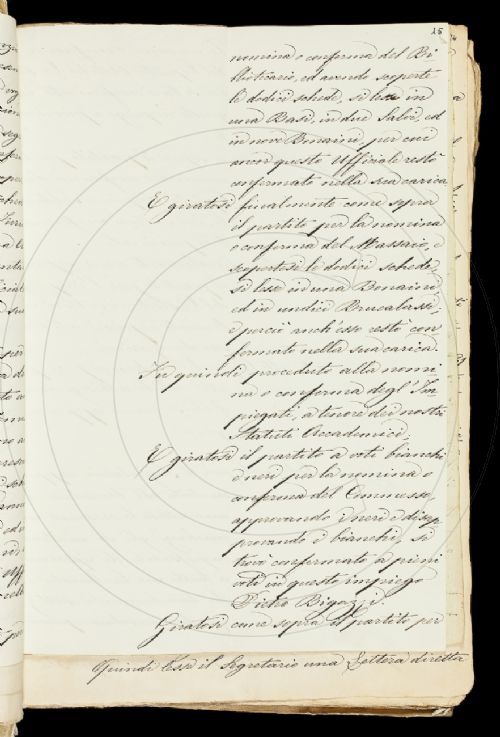 25
nomina o conferma del Bi
bliotecario, ed avendo scoperte
le dodici schede, si lesse in
una Basi, in due Salvi, ed
in nove Bonaini, per cui
ancor questo Uffiziale restò
confermato nella sua carica
E giratosi finalmente come sopra
il partito per la nomina
o conferma del Massaio, e
scopertosi le dodici schede,
si lesse in una Bonaini
ed in undici Brucalassi,
e perciò anch'esso restò con
fermato nella sua carica.
Fu quindi proceduto alla nomi
na o conferma degl'Im
piegati, a tenore dei nostri
Statuti Accademici.
E giratosi il partito a voti bianchi
e neri per la nomina o
conferma del Commesso,
approvando i neri e disap
provando i bianchi, si
trovò confermato a pieni
voti in questo impiego
Pietro Bigazzi.
Giratosi come sopra il partito per
Quindi lesse il Segretario una Lettera diretta